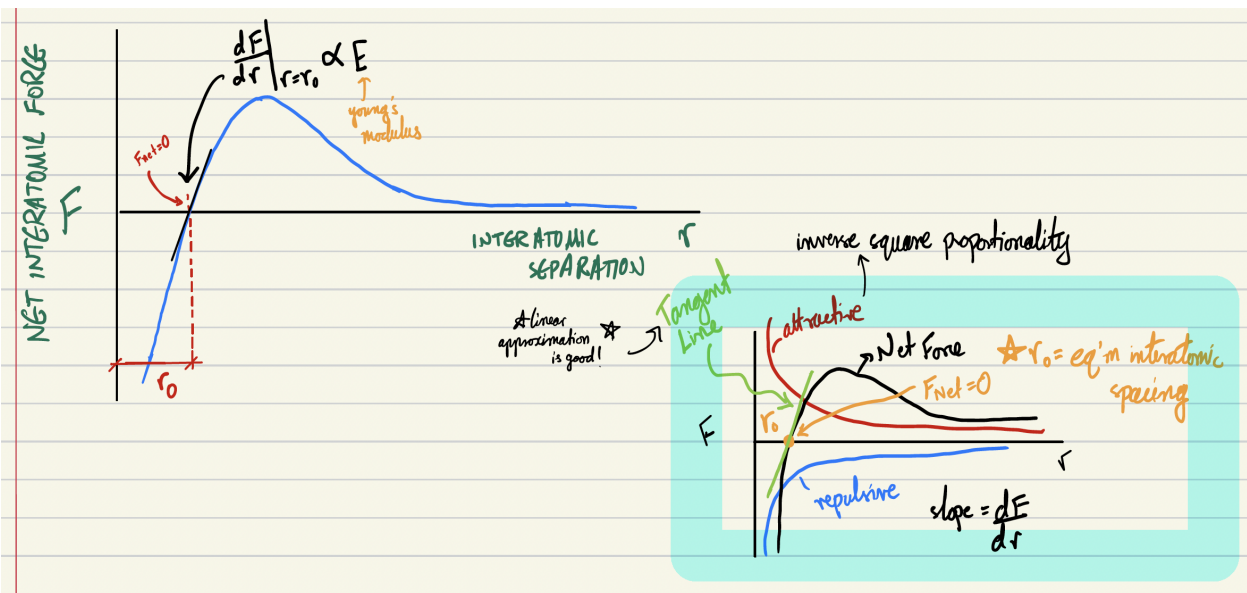 NET INTERATOMIC FORCE
F
dF/dr|r=r₀ ∝ E
young's
modulus
FNet=0
r₀
INTERATOMIC
SEPARATION
r
inverse square proportionality
☆linear
approximation ☆
is good!
Tangent
Line
attractive
Net Force
☆ r₀ = eq'm interatomic
spacing
FNet=0
r₀
F
r
repulsive
slope = dF/dr